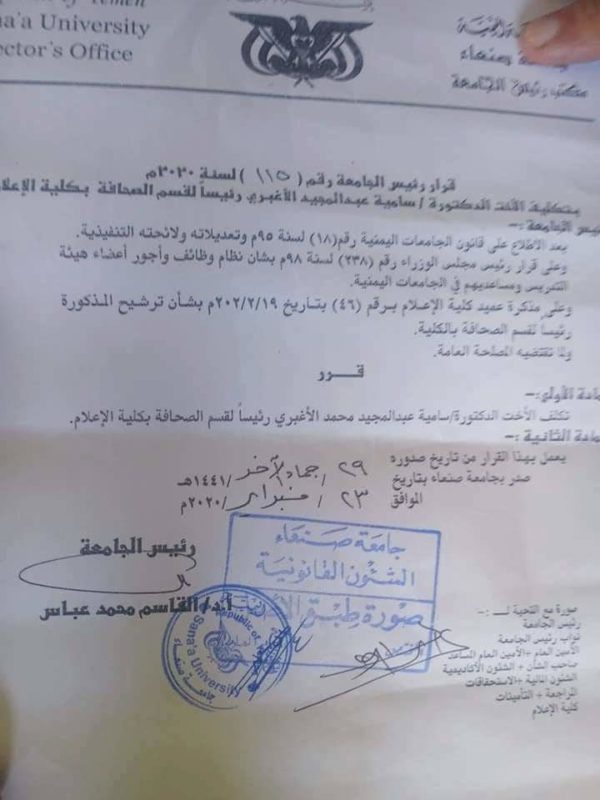 of Yemen
na'a University
ector's Office
جامعة صنعاء
مكتب رئيس الجامعة
قرار رئيس الجامعة رقم ( ١١٥ ) لسنة ٢٠٢٠م
بتكليف الأخت الدكتورة / سامية عبدالمجيد الأغبري رئيساً لقسم الصحافة بكلية الإعلا
يس الجامعة :-
بعد الاطلاع على قانون الجامعات اليمنية رقم(١٨) لسنة ٩٥م وتعديلاته ولائحته التنفيذية.
وعلى قرار رئيس مجلس الوزراء رقم (٢٣٨) لسنة ٩٨م بشان نظام وظائف وأجور أعضاء هيئة
التدريس ومساعديهم في الجامعات اليمنية.
وعلى مذكرة عميد كلية الإعلام برقم (٤٦) بتاريخ ٢٠٢/٢/١٩م بشأن ترشيح المذكورة
رئيساً لقسم الصحافة بالكلية.
ولما تقتضيه المصلحة العامة.
قـــرر
مادة الأولى:-
تكلف الأخت الدكتورة/سامية عبدالمجيد محمد الأغبري رئيساً لقسم الصحافة بكلية الإعلام.
مادة الثانية :-
يعمل بهذا القرار من تاريخ صدوره
صدر بجامعة صنعاء بتاريخ ٢٩ / جماد الآخر /١٤٤١هـ
الموافق ٢٣ / فبراير /٢٠٢٠م
رئيس الجامعة
أ.د/ القاسم محمد عباس
جامعة صنعاء
الشئون القانونية
صورة طبق الأ
Republic of
Sana'a University
جامعة صنعاء
صورة مع التحية لـ :-
رئيس الجامعة
نواب رئيس الجامعة
الأمين العام + الأمين العام المساعد
صاحب الشأن + الشئون الأكاديمية
الشئون المالية + الاستحقاقات
المراجعة + التأمينات
كلية الإعلام